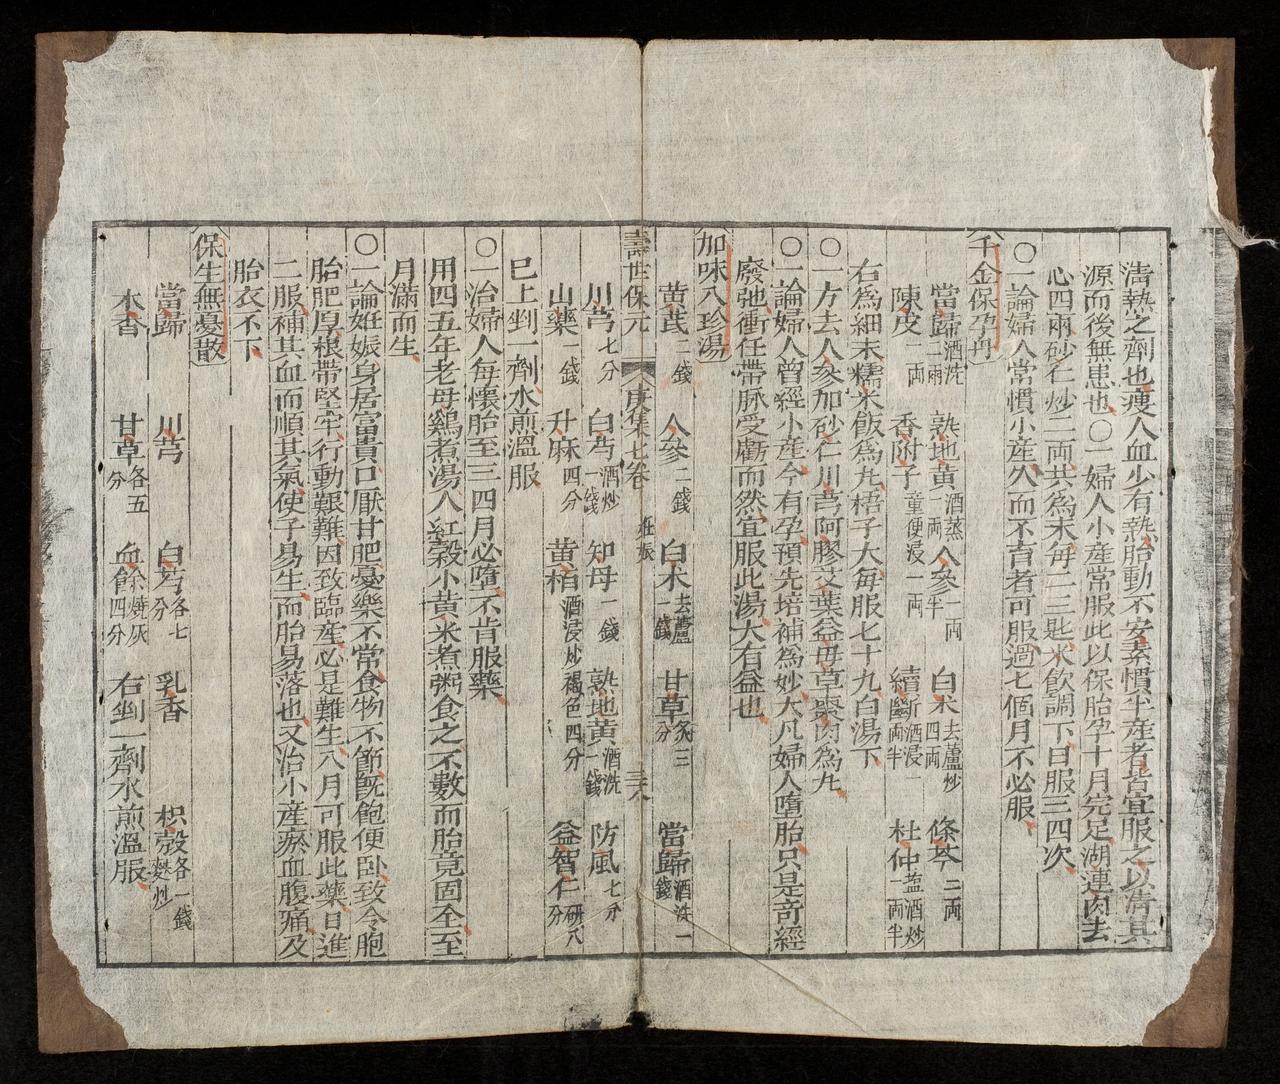 清熱之劑也瘦人血少有熱胎動不安素慣半產者皆宜服之以清其
源而後無患也○一婦人小產常服此以保胎孕十月完足湖連肉去
心四兩砂仁炒二兩共爲末每二三匙米飲調下日服三四次
○一論婦人常慣小產久而不育者可服過七個月不必服
千金保孕丹
當歸酒洗二兩 熟地黃酒蒸二兩 人參一兩半 白朮去蘆炒四兩 條芩二兩
陳皮一兩 香附子童便浸一兩 續斷酒浸一兩半 杜仲盐酒炒一兩半
右爲細末糯米飯爲丸梧子大每服七十丸白湯下
○一方去人參加砂仁川芎阿膠艾葉益母草棗肉爲丸
○一論婦人曾經小產今有孕預先培補爲妙大凡婦人墮胎只是奇經
廢弛衝任帶脉受虧而然宜服此湯大有益也
加味八珍湯
黃芪二錢 人參二錢 白朮去蘆一錢 甘草炙三分 當歸酒洗一錢
壽世保元 庚集七卷 妊娠 三六
川芎七分 白芍酒炒一錢 知母一錢 熟地黃酒洗一錢 防風七分
山藥一錢 升麻四分 黃栢酒浸炒褐色四分 益智仁研八分
巳上剉一劑水煎溫服
○一治婦人每懷胎至三四月必墮不肯服藥
用四五年老母鷄煮湯入紅穀小黃米煮粥食之不數而胎竟固至至
月滿而生
○一論妊娠身居富貴口厭甘肥憂樂不常食物不節旣飽便卧致令胞
胎肥厚根帶堅牢行動艱難因致臨產必是難生八月可服此藥日進
二服補其血而順其氣使子易生而胎易落也又治小產瘀血腹痛及
胎衣不下
保生無憂散
當歸 川芎 白芍各七分 乳香 枳殼各一錢麩炒
木香 甘草各五分 血餘燒灰四分 右剉一劑水煎溫服